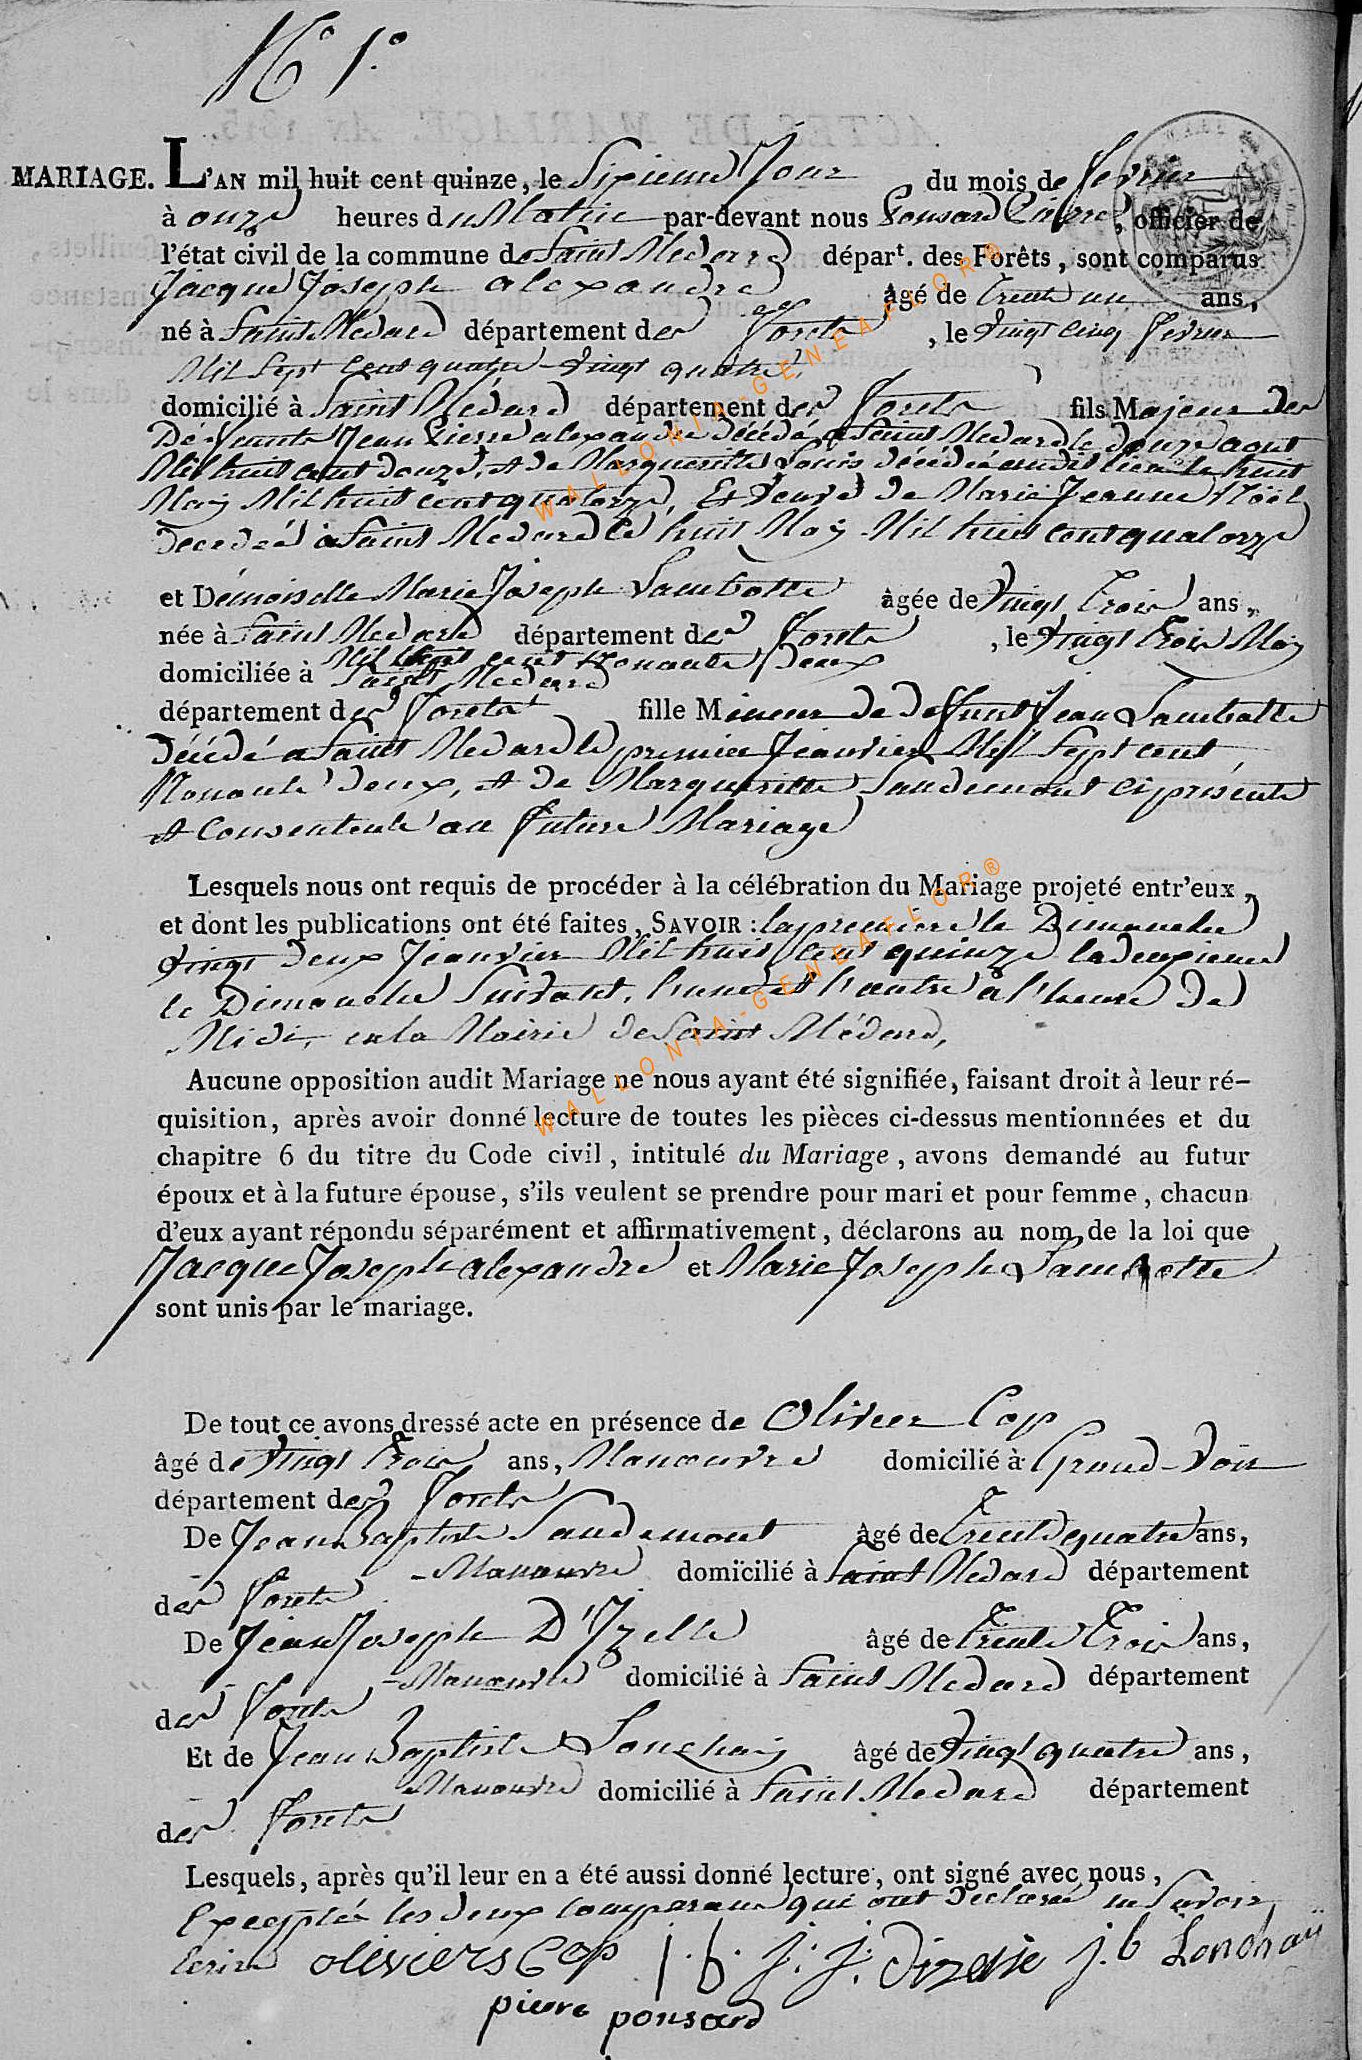 N° 1°.
MARIAGE. L'AN mil huit cent quinze, le Sixieme Jour du mois de fevrier
à onze heures du Matin par-devant nous Ponsard Pierre, officier de
l'état civil de la commune de Saint Medard départ. des Forêts, sont comparus
Jacque Joseph alexandre âgé de Trente un ans,
né à Saint Medard département des forets, le vingt cinq fevrier
Mil Sept Cent quatre-vingt quatre,
domicilié à Saint Médard département des forets fils Majeur des
Défeunts Jean Pierre alexandre décédé a Saint Medard le douze aout
Mil huit cent douze, et de Margueritte Louis décédée audit lieu le huit
May Mil huit cent quatorze, Et veuve de Marie Jeanne Noël
Decedeé a Saint Medard le huit May Mil huit cent quatorze
et Démoiselle Marie Joseph Lambotte âgée de Vingt Trois ans,
née à Saint Medard département des forets, le vingt Trois May
Mil Sept cent Nonante Deux
domiciliée à Saint Medard
département des forets fille Mineur de deffunt Jean Lambotte
décédé a Saint Medard le premier Jeanvier Mil Sept cent
Nonante deux, et de Margueritte Laudemont ci présente
et Consentente au future Mariage
Lesquels nous ont requis de procéder à la célébration du Mariage projeté entr'eux,
et dont les publications ont été faites, SAVOIR : la premiere le Dimanche
vingt deux Jeanvier Mil huit cent quinze la deuxieme
le Dimanche Suivant, l'une et l'autre à l'heure de
Midi, en la Mairie de Saint Médard,
Aucune opposition audit Mariage ne nous ayant été signifiée, faisant droit à leur ré-
quisition, après avoir donné lecture de toutes les pièces ci-dessus mentionnées et du
chapitre 6 du titre du Code civil, intitulé du Mariage, avons demandé au futur
époux et à la future épouse, s'ils veulent se prendre pour mari et pour femme, chacun
d'eux ayant répondu séparément et affirmativement, déclarons au nom de la loi que
Jacque Joseph alexandre et Marie Joseph Lambotte
sont unis par le mariage.
De tout ce avons dressé acte en présence de Olivier Cop
âgé de vingt Trois ans, Manoeuvre domicilié à Grand-Voir
département des forets
De Jean Baptiste Laudemont âgé de Trente quatre ans,
Manouvre domicilié à Saint Medard département
des forets
De Jean Joseph D'Izelle âgé de Trente Trois ans,
Manouvre domicilié à Saint Medard département
des forets
Et de Jean Baptiste Lonchay âgé de vingt quatre ans,
Manouvre domicilié à Saint Medard département
des forets
Lesquels, après qu'il leur en a été aussi donné lecture, ont signé avec nous,
Exceptés les deux comparans qui ont déclaré ne Savoir
écrire oliviers Cop j. b. j. j. dizelle j. b Lonchaÿ
pierre ponsard
WALLONIA-GENEAFLOR®
WALLONIA-GENEAFLOR®